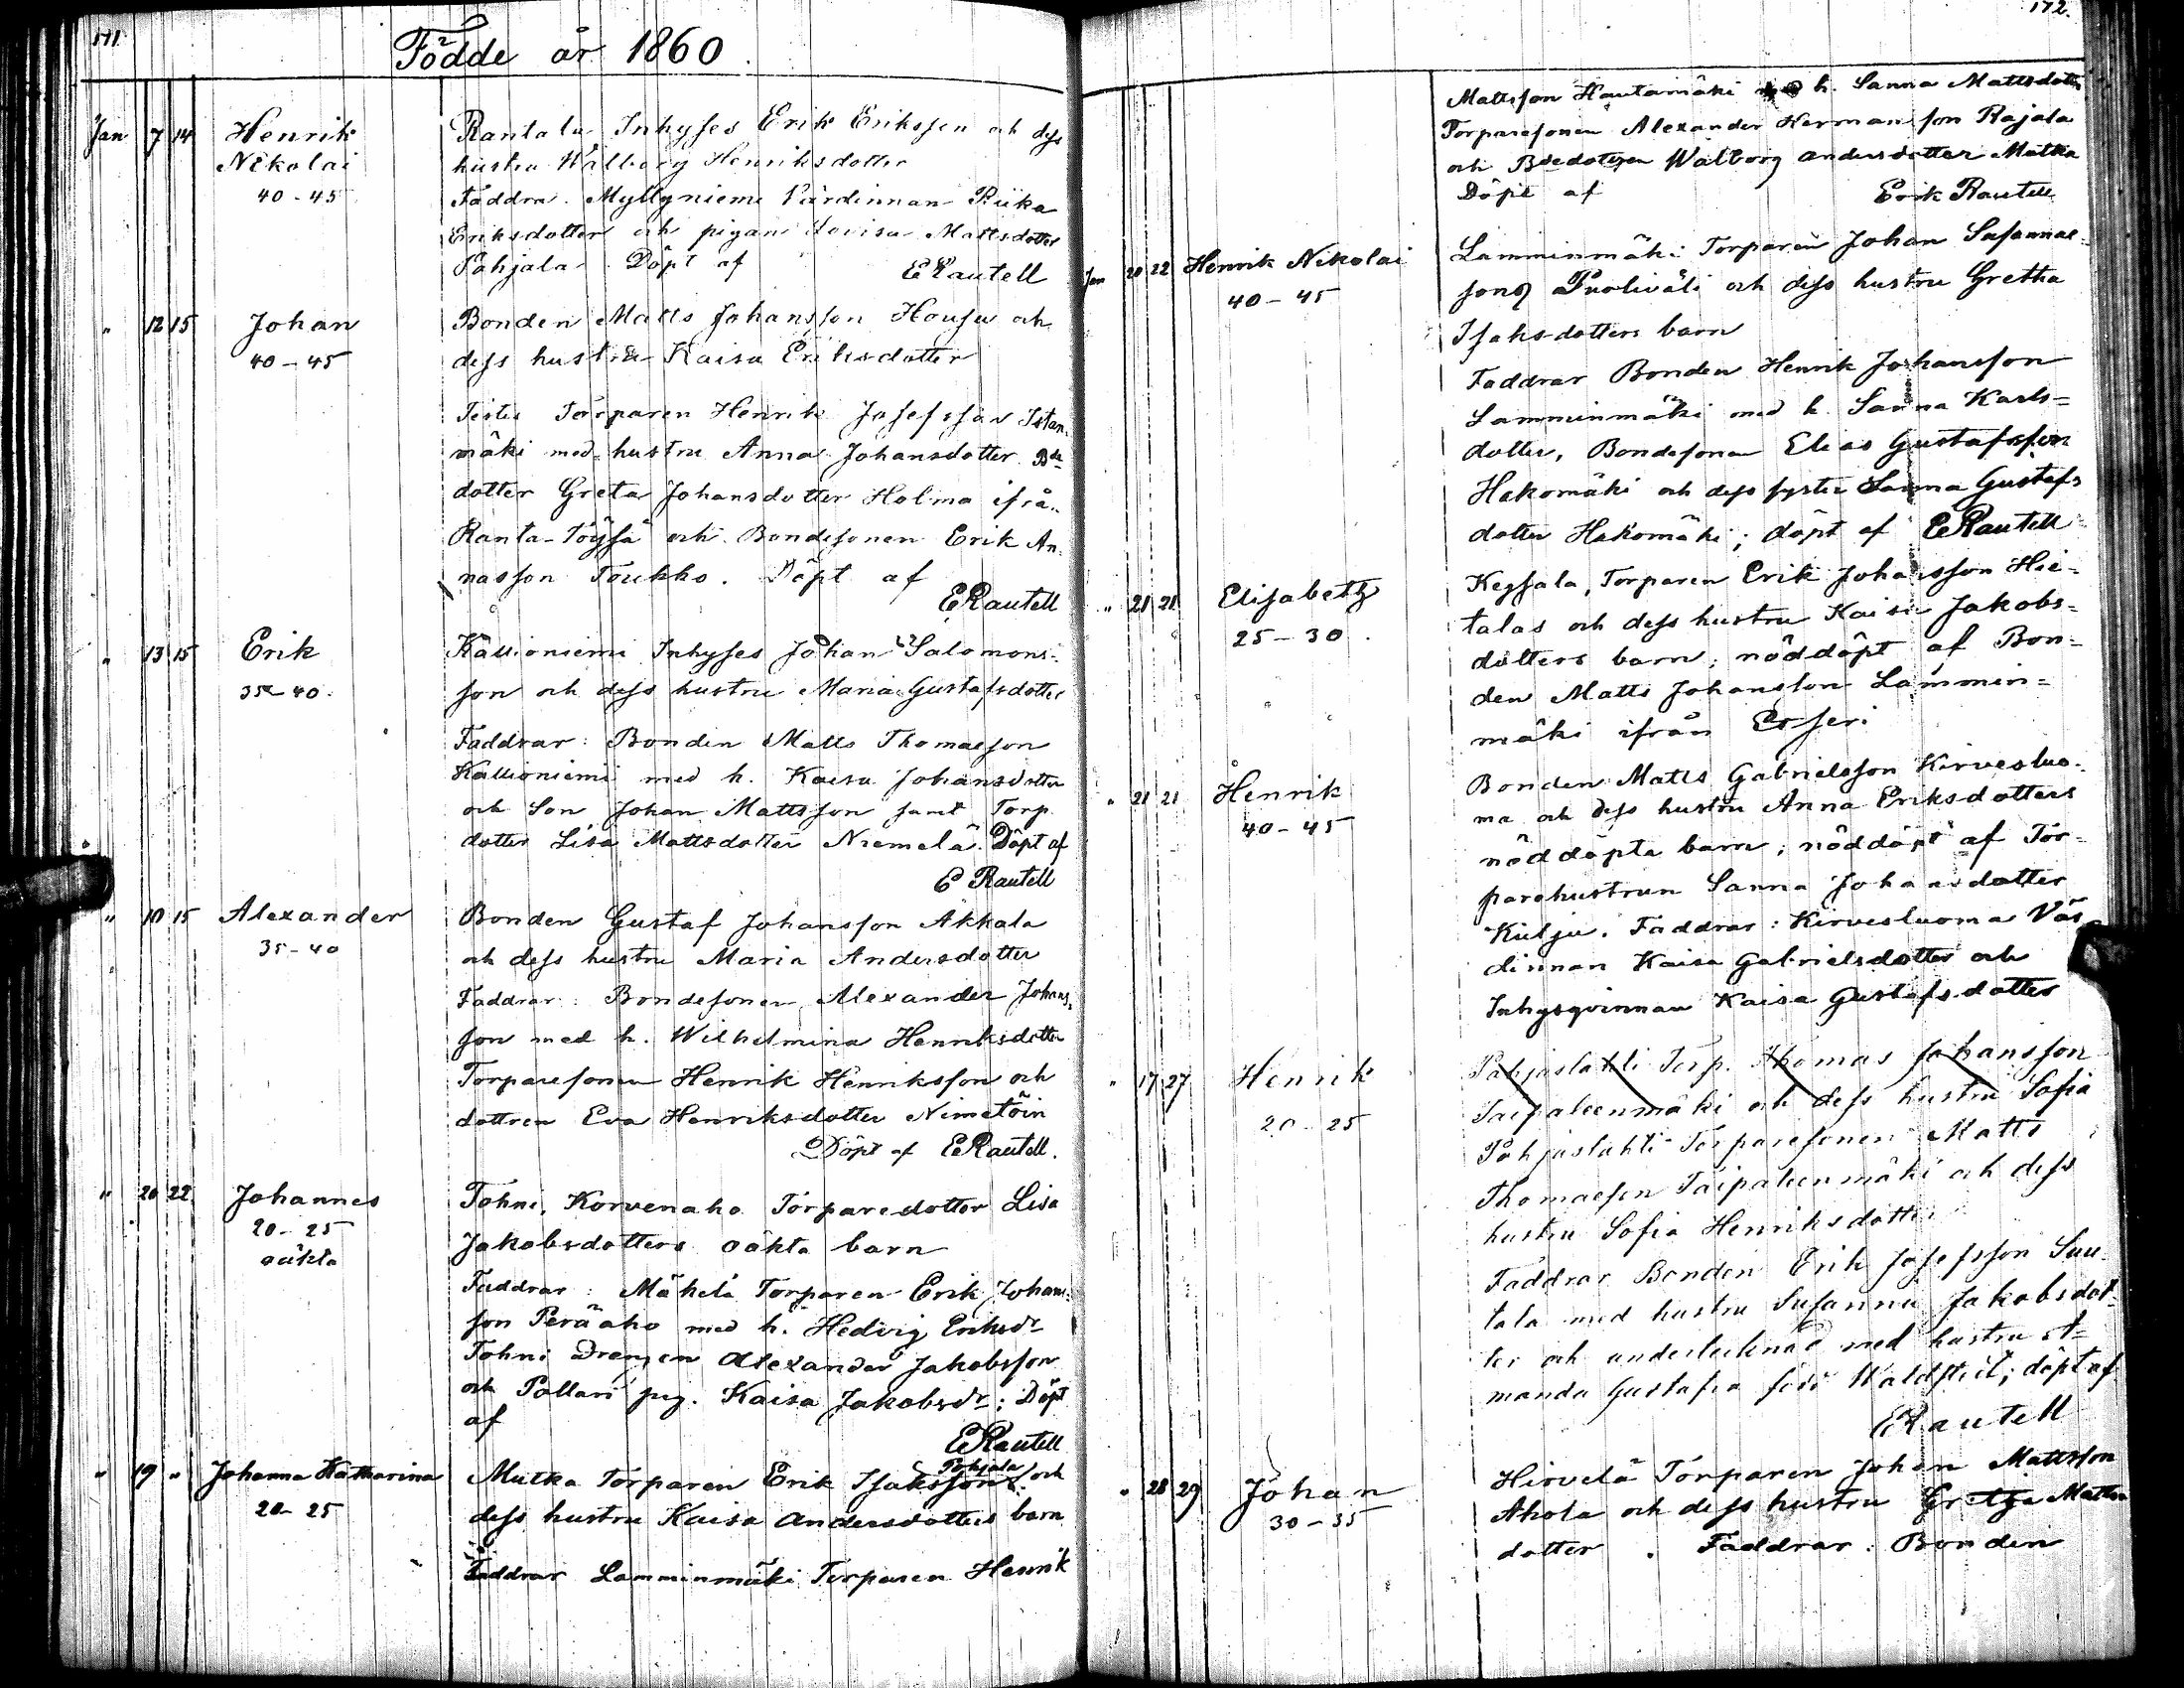 171
Födde år 1860.
Jan 7 14 Henrik Rantala Inhyses Erik Eriksson och dess
Nikolai hustru Walborg Henriksdotter
40-45 Faddra. Myllyniemi Värdinnan Riika
Eriksdotter och pigan Lovisa Mattsdotter
Pohjala. Döpt af ERautell
" 12 15 Johan Bonden Matts Johansson Housu och
40-45 dess hustru Kaisa Eriksdotter
Testes Torparen Henrik Josefsson
mäki med hustru Anna Johansdotter Bde
dotter Greta Johansdotter Holma ifrå..
Ranta-Töysä och Bondesonen Erik An-
nasson Toukko. Döpt af
ERautell
" 13 15 Erik Kallioniemi Inhyses Johan Salomons-
35-40. son och dess hustru Maria Gustafsdotter
Faddrar: Bonden Matts Thomasson
Kallioniemi med h. Kaisa Johansdotter
och Son Johan Mattsson samt Torp.
dotter Lisa Mattsdotter Niemelä. Döpt af
E Rautell
" 10 15 Alexander Bonden Gustaf Johansson Akkala
35-40 och dess hustru Maria Andersdotter
Faddrar: Bondesonen Alexander Johans-
son med h. Wilhelmina Henriksdotter
Torparesonen Henrik Henriksson och
dottren Eva Henriksdotter Nimetöin
Döpt af ERautell.
" 20 22 Johannes Tohni, Korvenaho Torparedotter Lisa
20-25 Jakobsdotters oäkta barn
oäkta
Faddrar: Mäkelä Torparen Erik Johans-
son Peräaho med h. Hedvig Eriksdr
Tohni Drengen Alexander Jakobsson
och Pollari pig. Kaisa Jakobsdr; Döpt
af
ERautell
" 19 " Johanna Katharina Mutka Torparen Erik Isaksson Pohjala och
20-25 dess hustru Kaisa Andersdotters barn
Faddrar Lamminmäki Torparen Henrik
172.
Mattsson Hautamäki med h. Sanna Mattsdotter
Torparesonen Alexander Hermansson Rajala
och Bdedotern Walborg Andersdotter Mutka
Döpt af Erik Rautell
Jan 20 22 Henrik Nikolai Lamminmäki Torparen Johan Susannae-
40-45 sons Puoliväli och dess hustru Gretha
Isaksdotters barn
Faddrar Bonden Henrik Johansson
Lamminmäki med h. Sanna Karls=
dotter, Bondesonen Elias Gustafsson
Hakomäki och dess syster Sanna Gustafs
dotter Hakomäki; döpt af ERautell
" 21 21 Elisabeth Keysala, Torparen Erik Johansson Hie-
25-30. talas och dess hustru Kaisa Jakobs=
dotters barn; nöddöpt af Bon=
den Matts Johansson Lammin=
mäki ifrån Etseri
" 21 21 Henrik Bonden Matts Gabrielsson Kirvesluo-
40-45 ma och dess hustru Anna Eriksdotters
nöddöpta barn; nöddöpt af Tor-
parehustrun Sanna Johansdotter
Kulju. Faddrar: Kirvesluoma Vär
dinnan Kaisa Gabrielsdotter och
Inhysqvinnan Kaisa Gustafsdotter
" 17 27 Henrik Pohjaslahti Torp. Thomas Johansson
20-25 Taipaleenmäki och dess hustru Sofia
Pohjaslahti Torparesonen Matts
Thomasson Taipaleenmäki och dess
hustru Sofia Henriksdotter
Faddrar Bonden Erik Josefsson Suu-
tala med hustru Susanna Jakobsdot-
ter och undertecknad med hustru A-
manda Gustafva född; döpt af
ERautell
" 28 29 Johan Hirvelä Torparen Johan Mattsson
30-35 Ahola och dess hustru Greta Matts
dotter. Faddrar: Bonden